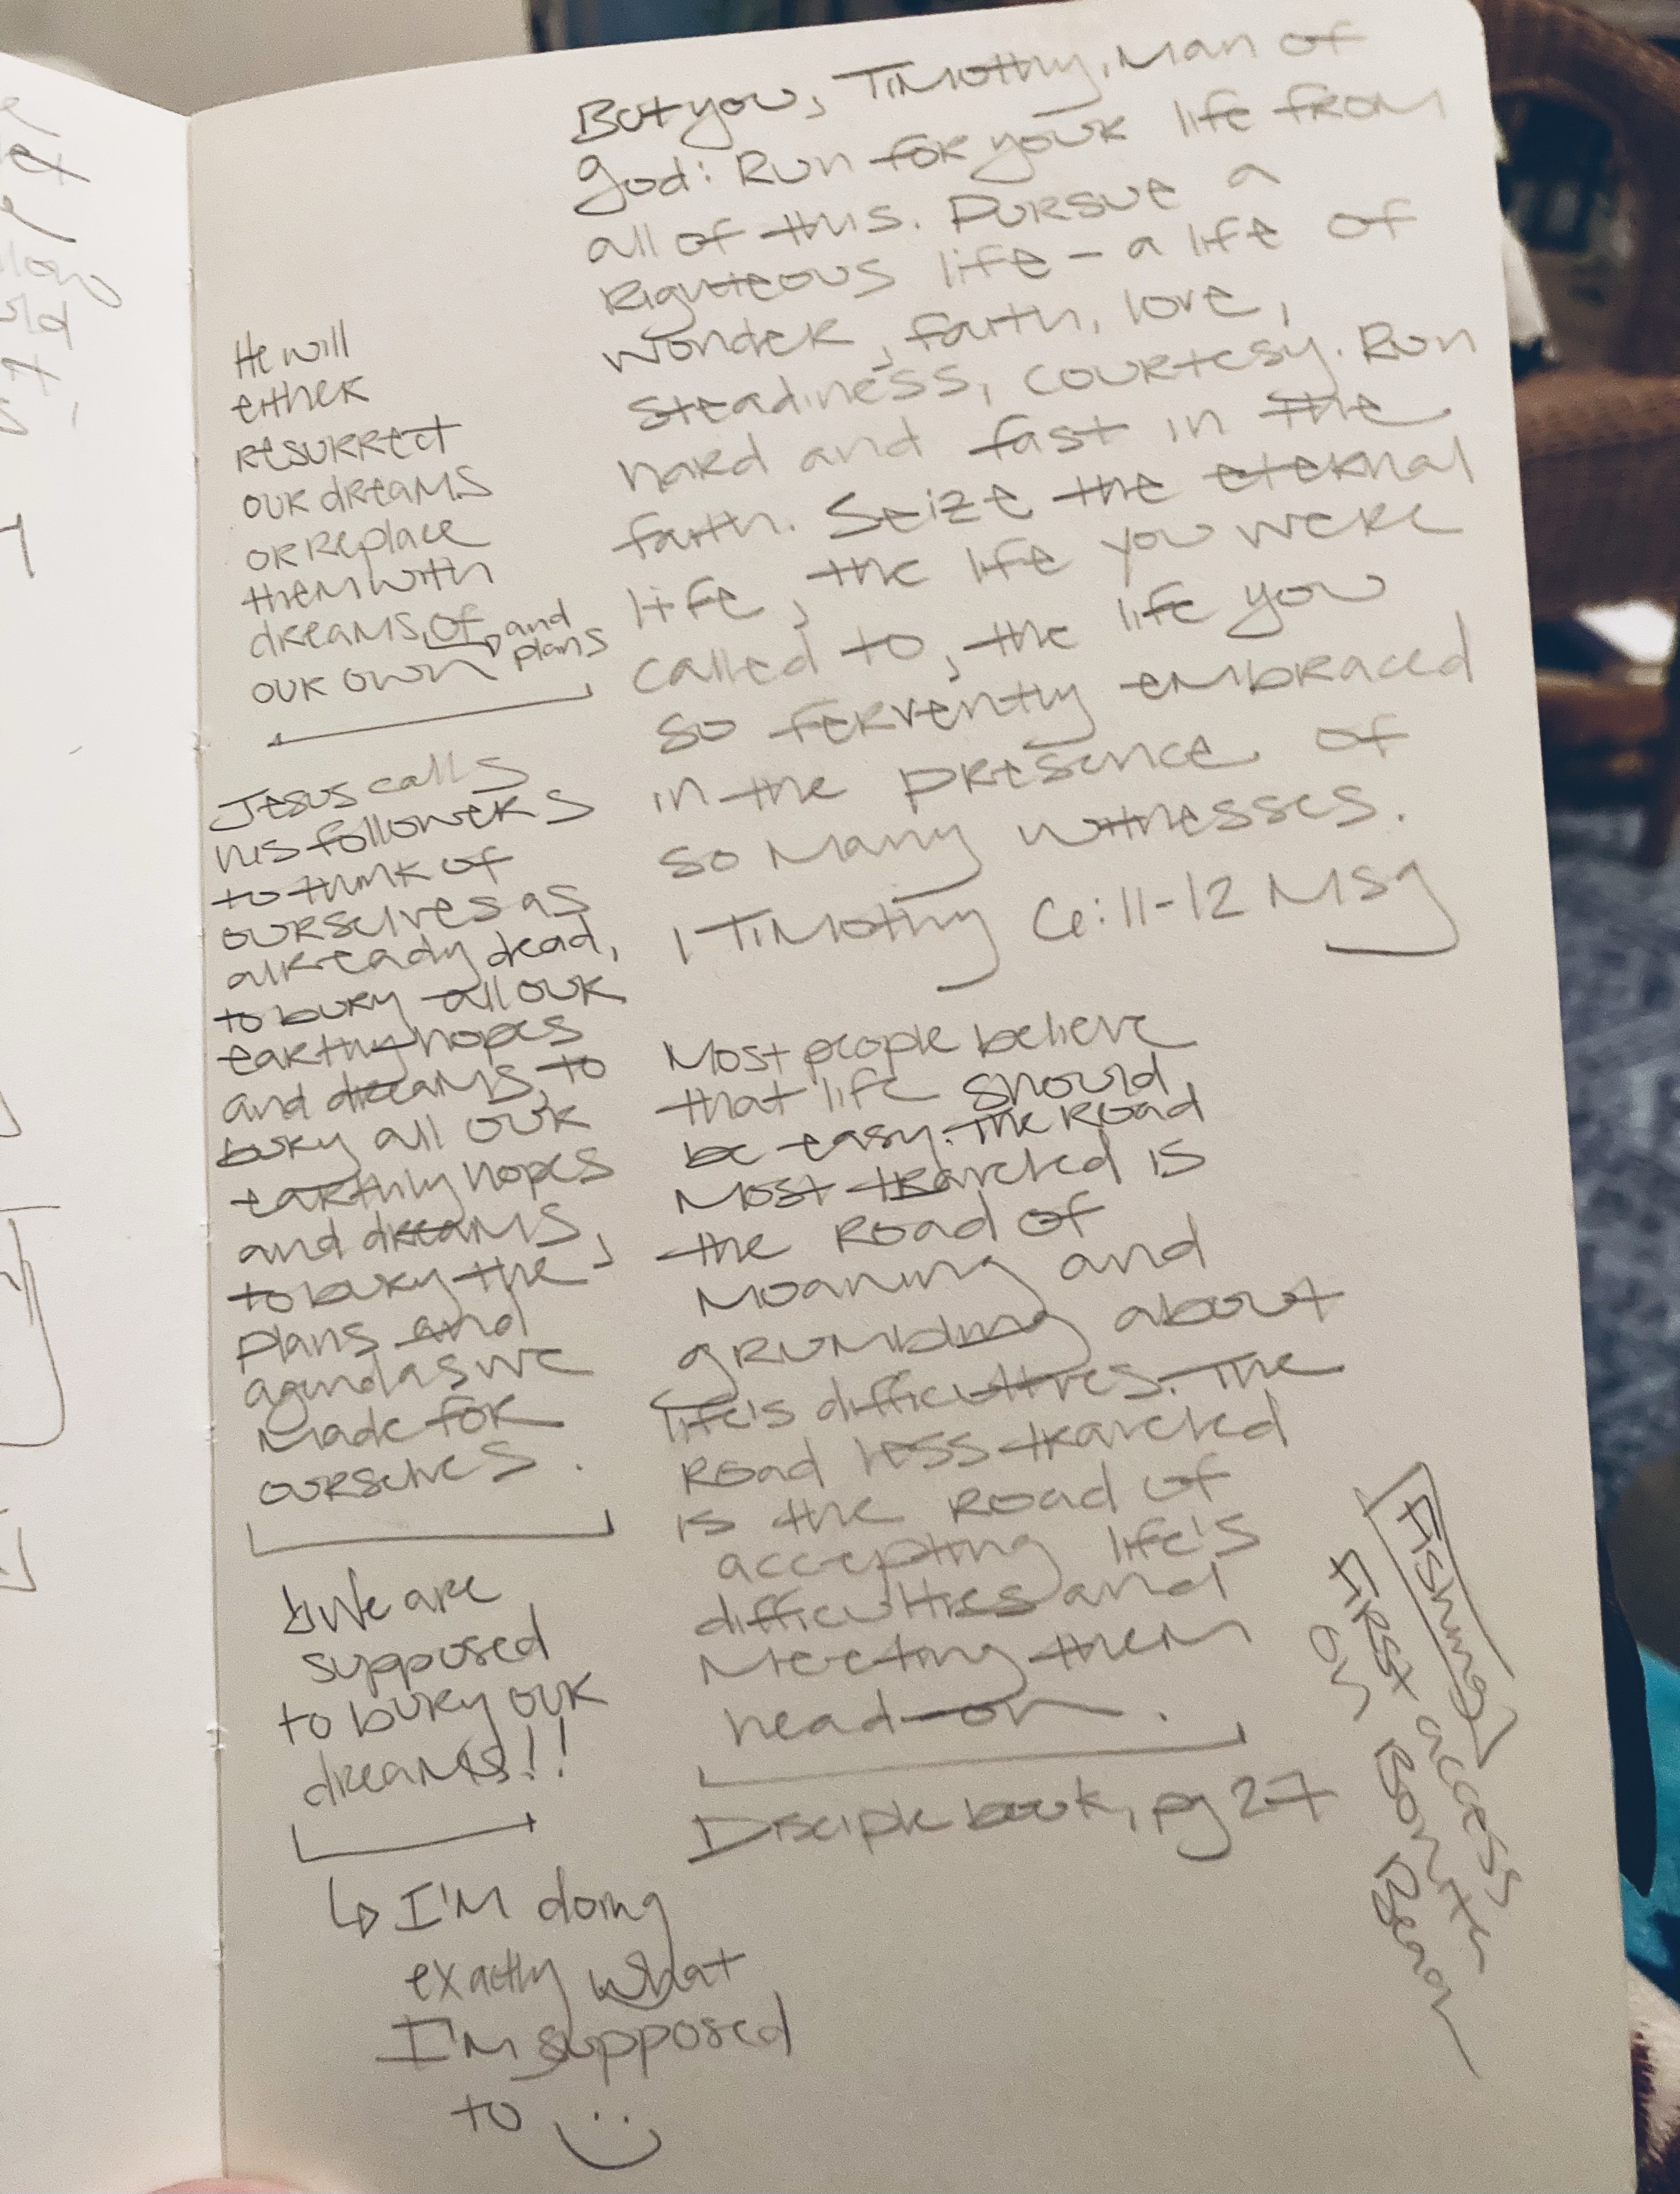 But you, Timothy, Man of
god: Run for your life from
all of this. Pursue a
Righteous life - a life of
wonder, faith, love,
steadiness, courtesy. Run
hard and fast in the
faith. Seize the eternal
life, the life you were
called to, the life you
so fervently embraced
in the presence of
so Many witnesses.
1 Timothy 6:11-12 Msg
Most people believe
that life should
be easy. The Road
Most traveled is
the Road of
Moaning and
grumbling about
life's difficulties. The
Road less traveled
is the Road of
accepting life's
difficulties and
Meeting them
head-on.
Disciple book, pg 27
He will
either
resurrect
our dreams
or replace
them with
dreams of and
plans
our own
Jesus calls
his followers
to think of
ourselves as
already dead,
to bury all our
earthly hopes
and dreams, to
bury all our
earthly hopes
and dreams,
to bury the
plans and
agendas we
made for
ourselves.
We are
supposed
to bury our
dreams!!
I'm doing
exactly what
I'm supposed
to
Fishing
First access
on